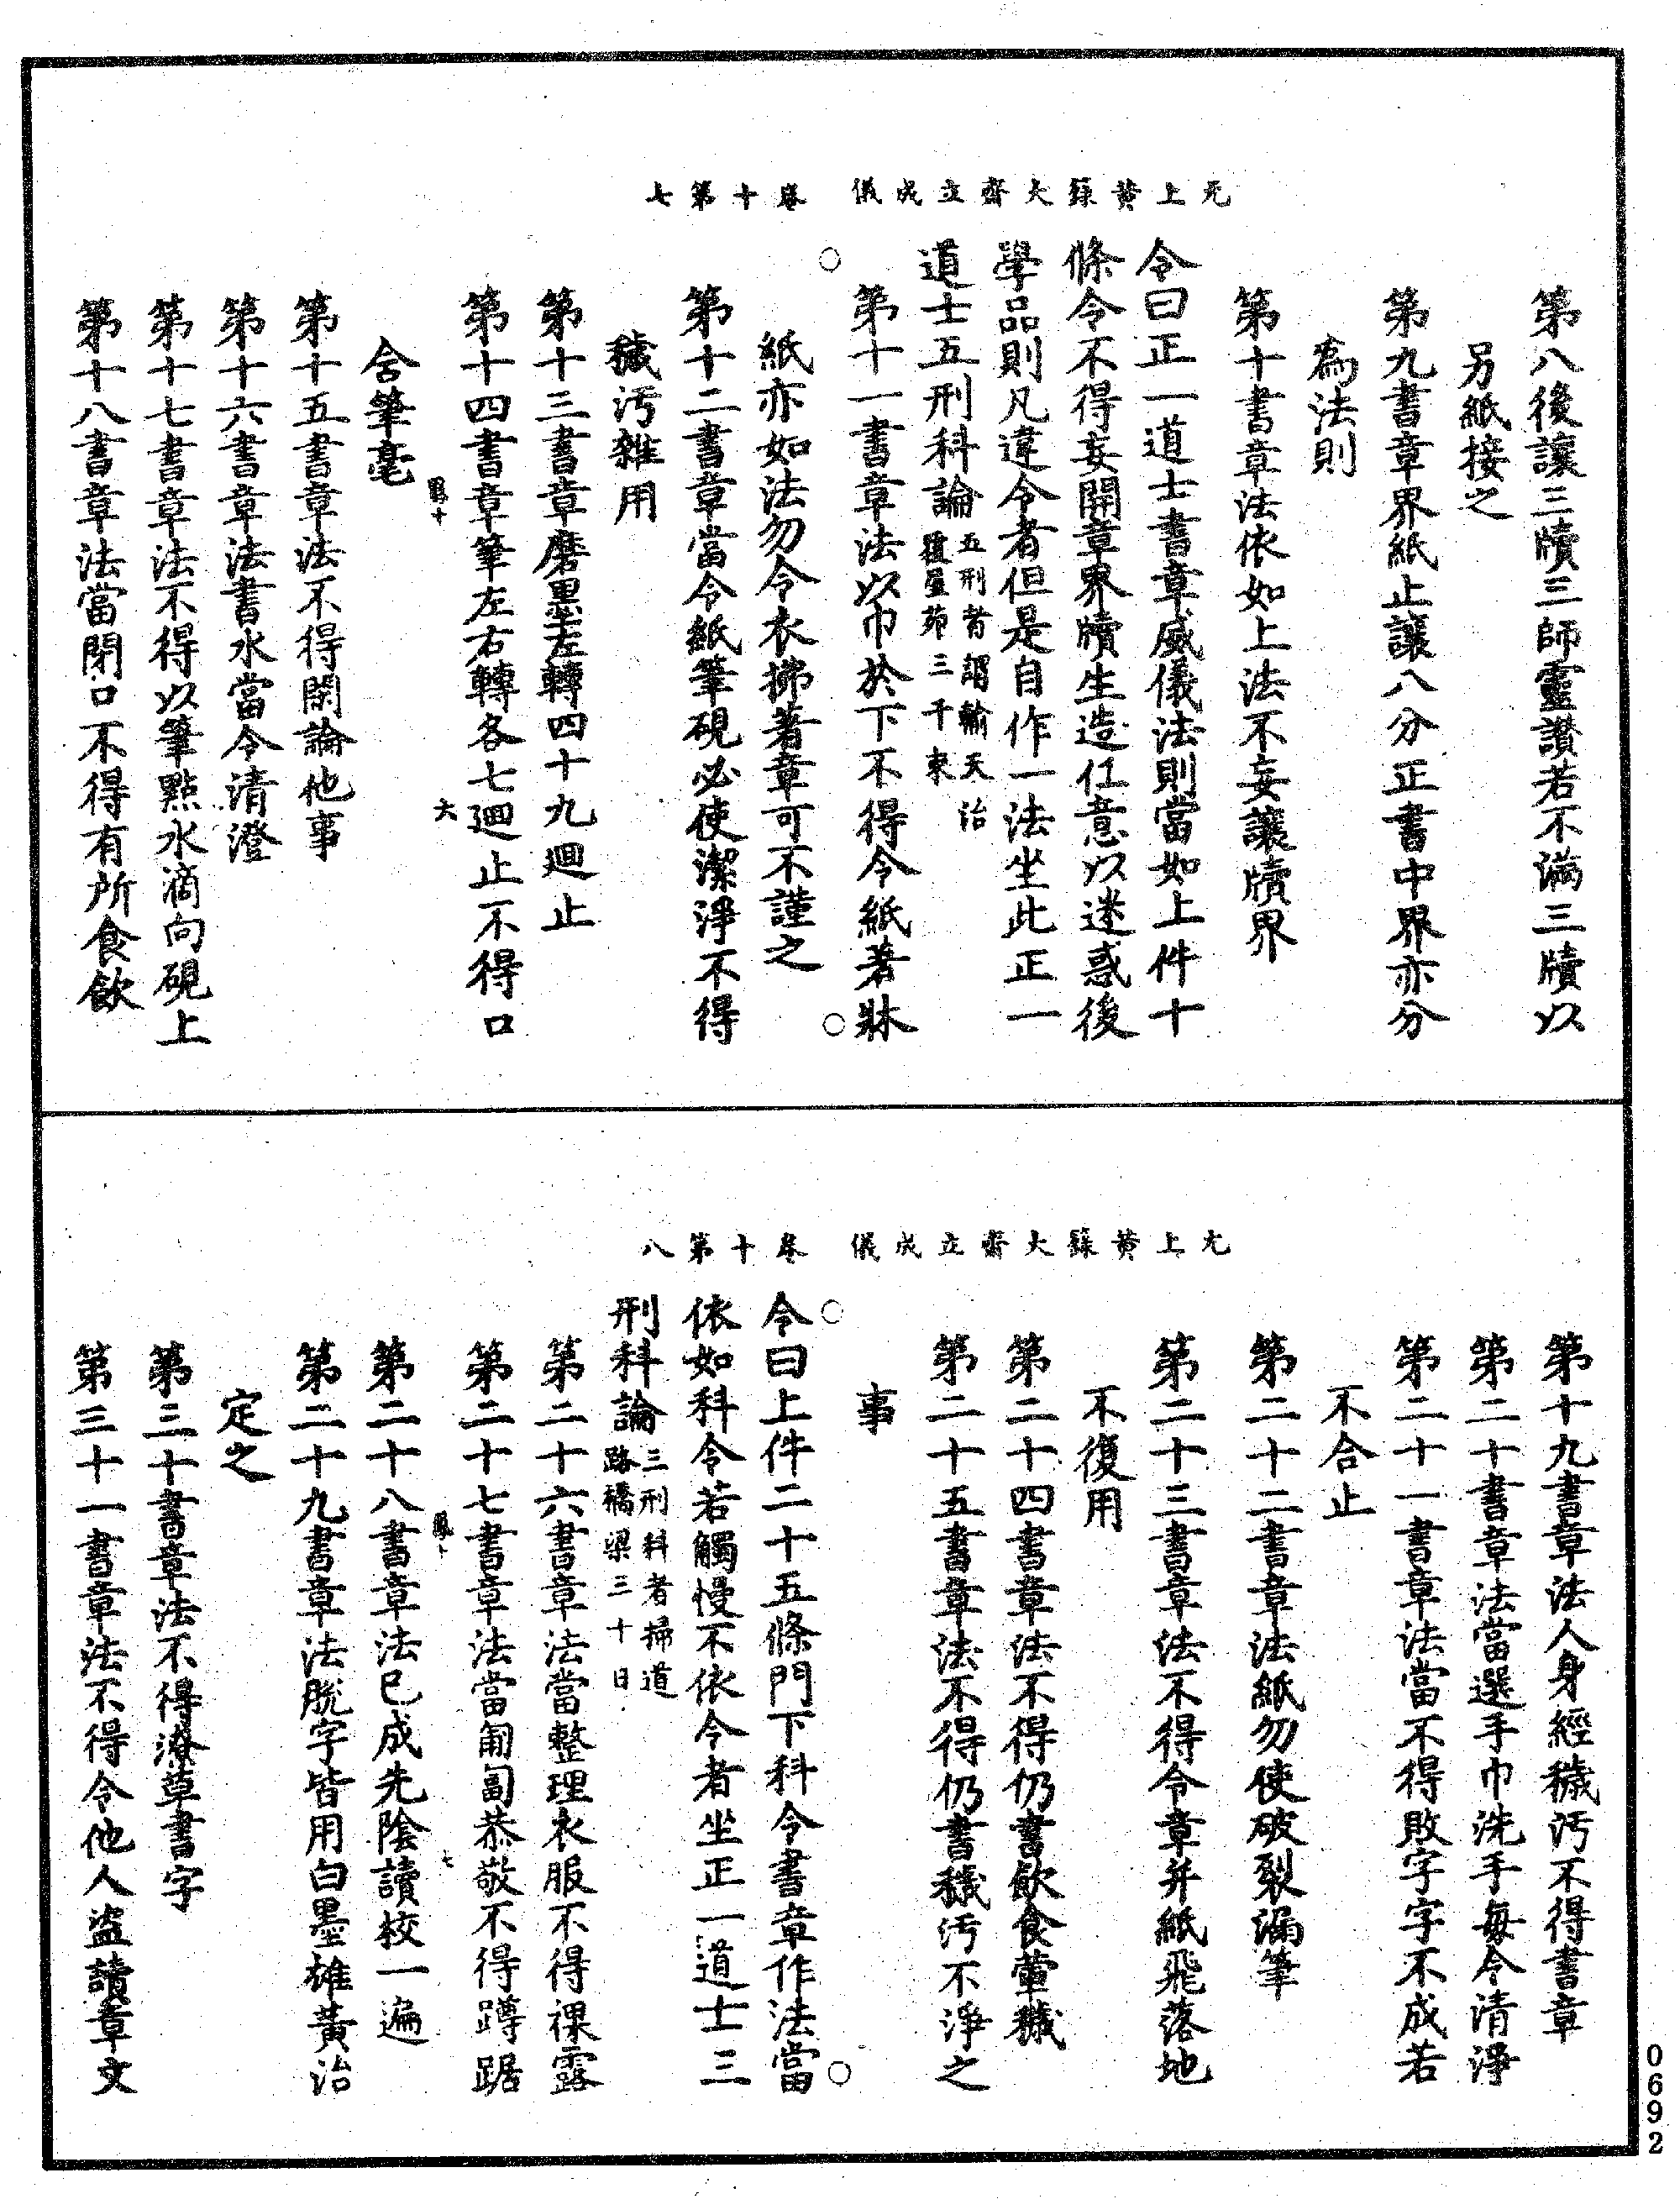 无上黃籙大齋立成儀　卷十第七
第八後讓三牘三師靈讚若不滿三牘以
另紙接之
第九書章界紙止讓八分正書中界亦分
為法則
第十書章法依如上法不妄讓牘界
令曰正一道士書章威儀法則當如上件十
條令不得妄開章界牘生造任意以迷惑後
學品則凡違令者但是自作一法坐此正一
道士五刑科論五刑者謂輸天治
覆屋茆三千束
第十一書章法以巾於下不得令紙著牀
紙亦如法勿令衣拂著章可不謹之
第十二書章當令紙筆硯必使潔淨不得
穢污雜用
第十三書章磨墨左轉四十九迴止
第十四書章筆左右轉各七迴止不得口
含筆毫
六
第十五書章法不得閑論他事
第十六書章法書水當令清澄
第十七書章法不得以筆點水滴向硯上
第十八書章法當閉口不得有所食飲
无上黃籙大齋立成儀　卷十第八
第十九書章法人身經穢污不得書章
第二十書章法當選手巾洗手每令清淨
第二十一書章法當不得敗字字不成若
不合止
第二十二書章法紙勿使破裂漏筆
第二十三書章法不得令章并紙飛落地
不復用
第二十四書章法不得仍書飲食葷穢
第二十五書章法不得仍書穢污不淨之
事
令曰上件二十五條門下科令書章作法當
依如科令若觸慢不依令者坐正一道士三
刑科論三刑科者掃道
路橋梁三十日
第二十六書章法當整理衣服不得裸露
第二十七書章法當匍匐恭敬不得蹲踞
七
第二十八書章法已成先陰讀校一遍
第二十九書章法脫字皆用白墨雄黃治
定之
第三十書章法不得潦草書字
第三十一書章法不得令他人盜讀章文
0692